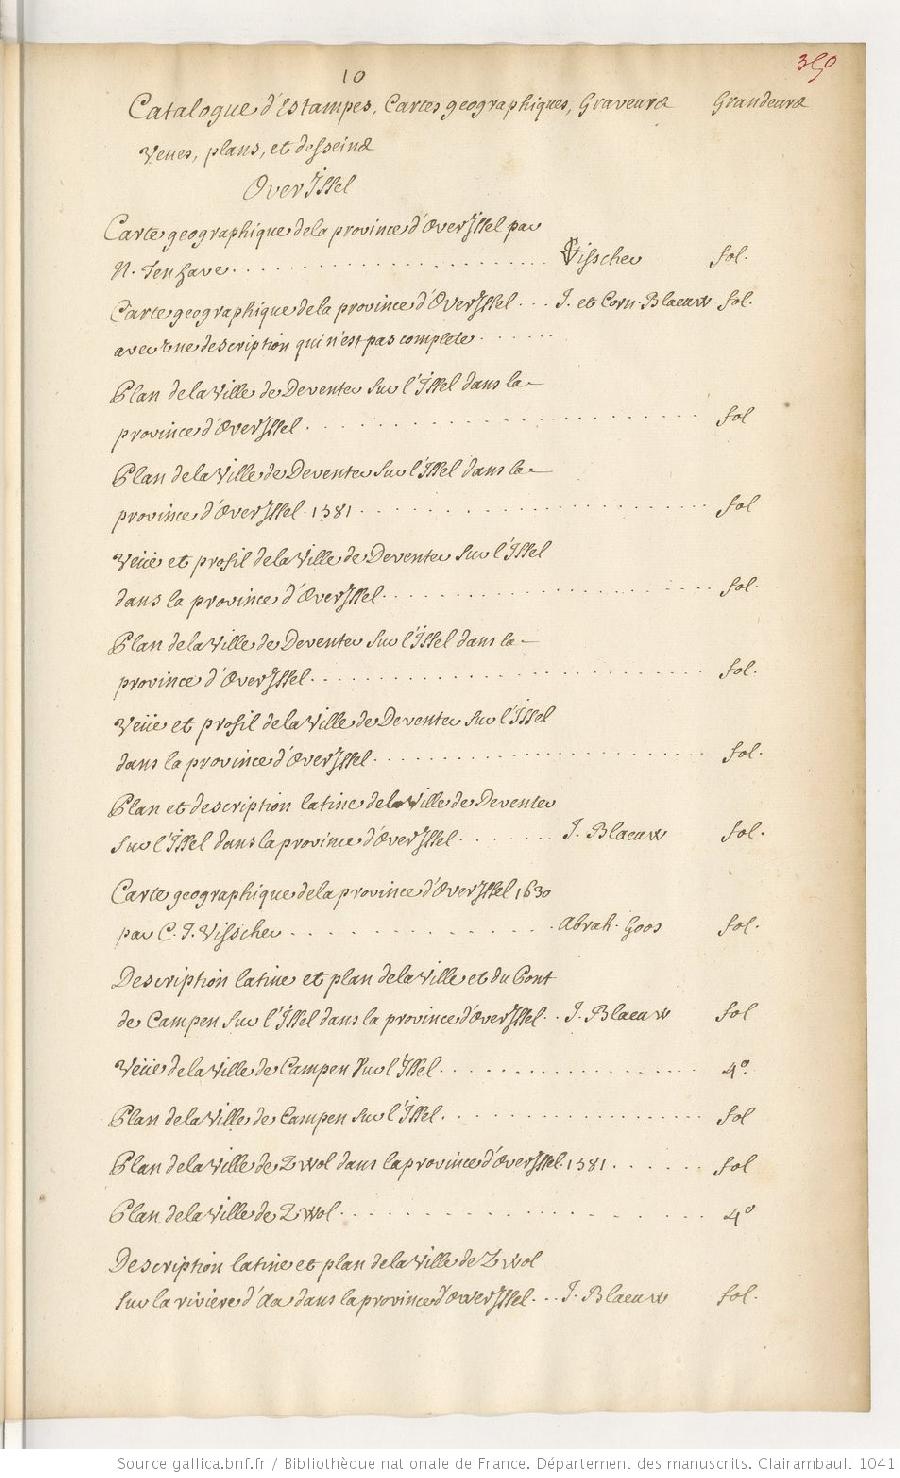 350
10
Catalogue d'Estampes, Cartes geographiques, Graveurs Grandeurs
Veues, plans, et desseins
OverIssel
Carte geographique de la province d'OverIssel par
N. Ten have. . . . . . . . . . . . Visscher fol.
Carte geographique de la province d'OverIssel . . . J. et Corn. Blaeuw fol.
avec une description qui n'est pas complete . . . . . .
Plan de la Ville de Deventer sur l'Issel dans la
province d'OverIssel . . . . . . . . . . . . fol
Plan de la Ville de Deventer sur l'Issel dans la
province d'OverIssel 1581 . . . . . . . . . . . . fol
Veüe et profil de la Ville de Deventer sur l'Issel
dans la province d'OverIssel . . . . . . . . . . . . fol.
Plan de la Ville de Deventer sur l'Issel dans la
province d'OverIssel . . . . . . . . . . . . fol.
Veüe et profil de la Ville de Deventer sur l'Issel
dans la province d'OverIssel . . . . . . . . . . . . fol.
Plan et description latine de la Ville de Deventer
sur l'Issel dans la province d'OverIssel . . . . . . J. Blaeuw fol.
Carte geographique de la province d'OverIssel 1630
par C. J. Visscher . . . . . . . . . . . . Abrah. Goos fol.
Description latine et plan de la Ville et du Pont
de Campen sur l'Issel dans la province d'OverIssel . . J. Blaeuw fol
Veüe de la Ville de Campen sur l'Issel . . . . . . . . . . . . 4º.
Plan de la Ville de Campen sur l'Issel . . . . . . . . . . . . fol
Plan de la Ville de Zwol dans la province d'OverIssel 1581 . . . . . . fol
Plan de la Ville de Zwol . . . . . . . . . . . . 4º
Description latine et plan de la Ville de Zwol
sur la riviere d'Aa dans la province d'OverIssel . . . J. Blaeuw fol.
Source gallica.bnf.fr / Bibliothèque nationale de France. Département des manuscrits. Clairambault. 1041